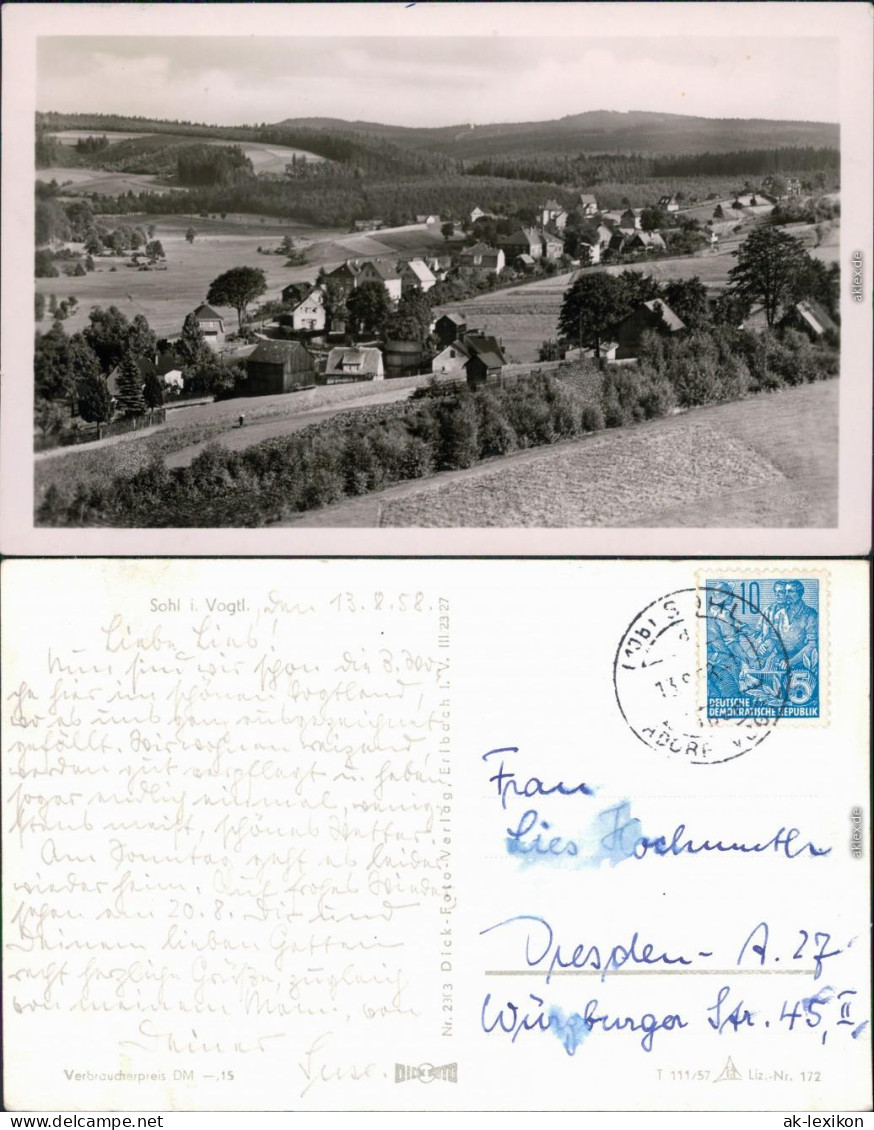 Sohl i. Vogtl. den 13.8.58.
Liebe Lies!
Nun sind wir schon die 3. Wo-
che hier im schönen Vogtland,
wo es uns ganz ausgezeichnet
gefällt. Wir wohnen reizend
werden gut verpflegt u. haben
sogar endlich einmal, wenig-
stens meist, schönes Wetter.
Am Sonntag geht es leider
wieder heim. Auf frohes Wieder-
sehen am 20.8. Dir und
Deinem lieben Gatten
recht herzliche Grüße, zugleich
von meinem Mann, von
Deiner
Suse.
Verbraucherpreis DM –,15
Nr. 2303 Dick-Foto-Verlag, Erlbach i. V. III 23 27
DICK FOTO
SOHL
ADORF
10
5
DEUTSCHE
DEMOKRATISCHE REPUBLIK
Frau
Lies Hochmuth
Dresden- A. 27
Würzburger Str. 45, II
T 111/57 Liz.-Nr. 172
aklex.de
aklex.de
ak-lexikon